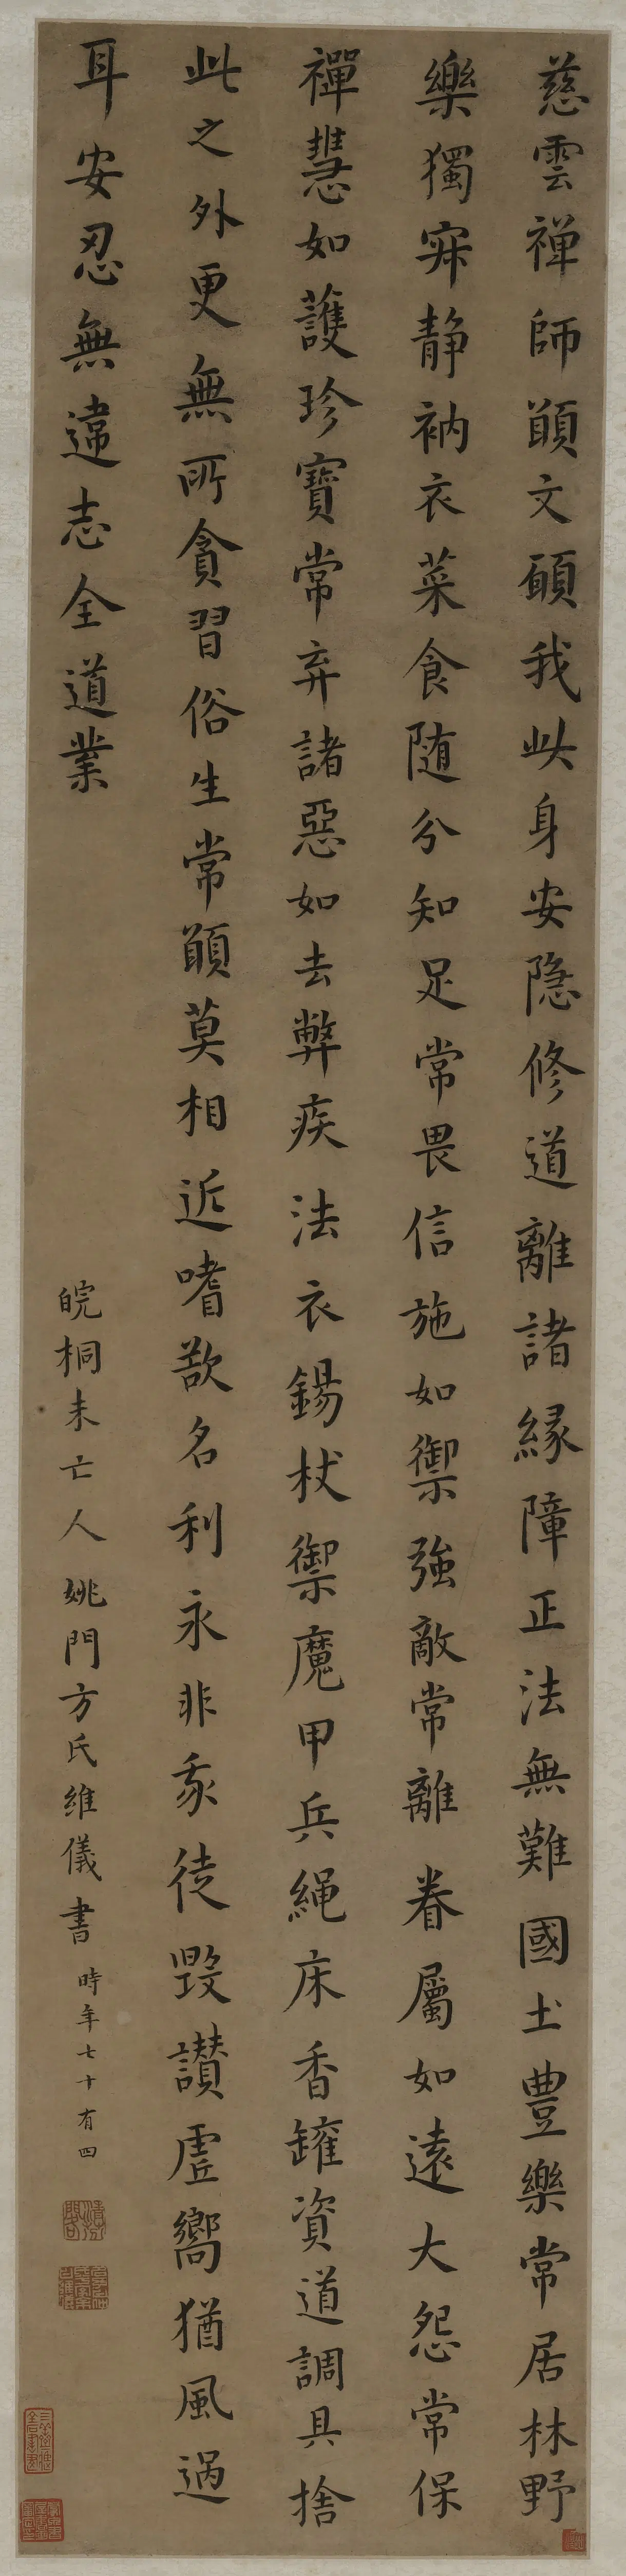 慈雲禪師顗文願我此身安隱修道離諸緣障正法無難國土豊樂常居林野
樂獨㝛静衲衣菜食随分知足常畏信施如禦強敵常離眷屬如遠大怨常保
禪慧如護珍寶常弃諸惡如去弊疾法衣錫杖禦魔甲兵繩床香罐資道調具捨
此之外更無所貪習俗生常顗莫相近嗜欲名利永非我徒毀讃虛嚮猶風過
耳安忍無違志全道業
皖桐未亡人姚門方氏維儀書時年七十有四